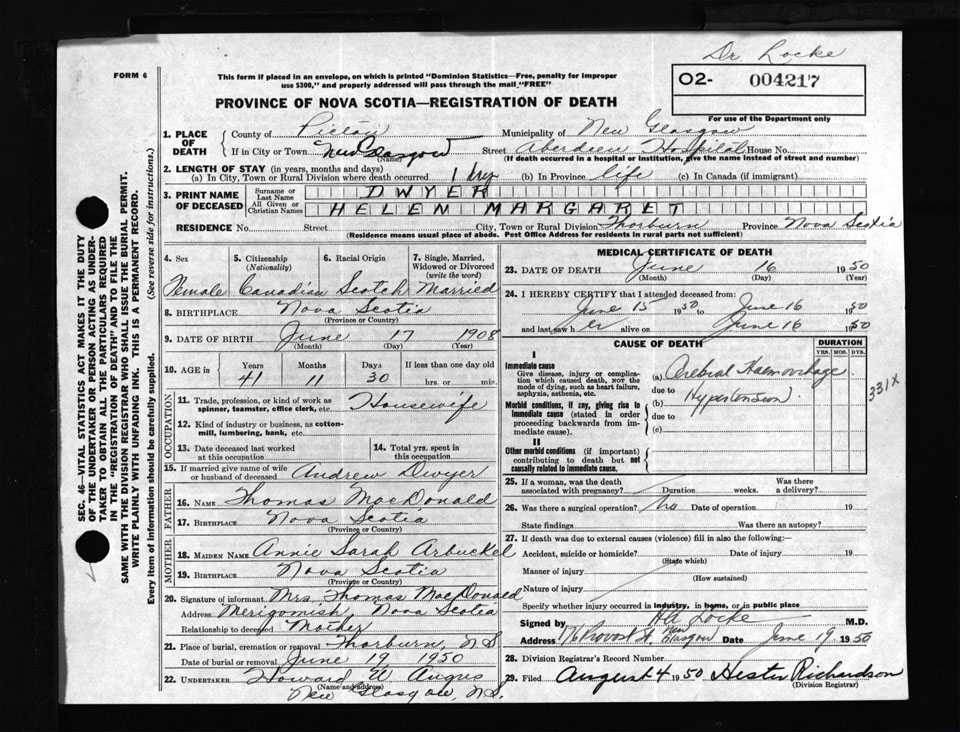 Dr Locke
FORM 6
This form if placed in an envelope, on which is printed "Dominion Statistics—Free, penalty for improper
use $300," and properly addressed will pass through the mail "FREE"
O2- 004217
For use of the Department only
PROVINCE OF NOVA SCOTIA—REGISTRATION OF DEATH
SEC. 46 VITAL STATISTICS ACT MAKES IT THE DUTY
OF THE UNDERTAKER OR PERSON ACTING AS UNDER-
TAKER TO OBTAIN ALL THE PARTICULARS REQUIRED
IN THE "REGISTRATION OF DEATH" AND TO FILE THE
SAME WITH THE DIVISION REGISTRAR WHO SHALL ISSUE THE BURIAL PERMIT.
WRITE PLAINLY WITH UNFADING INK. THIS IS A PERMANENT RECORD.
Every item of information should be carefully supplied. (See reverse side for instructions.)
1. PLACE OF DEATH
County of Pictou Municipality of New Glasgow
If in City or Town New Glasgow (Name) Street Aberdeen Hospital House No.
(If death occurred in a hospital or institution, give the name instead of street and number)
2. LENGTH OF STAY (in years, months and days)
(a) In City, Town or Rural Division where death occurred 1 day (b) In Province life (c) In Canada (if immigrant)
3. PRINT NAME OF DECEASED
Surname or Last Name DWYER
All Given or Christian Names HELEN MARGARET
RESIDENCE No. Street City, Town or Rural Division Thorburn Province Nova Scotia
(Residence means usual place of abode. Post Office Address for residents in rural parts not sufficient)
4. Sex 5. Citizenship (Nationality) 6. Racial Origin 7. Single, Married, Widowed or Divorced (write the word)
Female Canadian Scotch Married
8. BIRTHPLACE Nova Scotia
(Province or Country)
9. DATE OF BIRTH June 17 1908
(Month) (Day) (Year)
10. AGE in Years Months Days If less than one day
41 11 30 hrs. or min.
OCCUPATION
11. Trade, profession, or kind of work as spinner, teamster, office clerk, etc. Housewife
12. Kind of industry or business, as cotton-mill, lumbering, bank, etc.
13. Date deceased last worked at this occupation 14. Total yrs. spent in this occupation
15. If married give name of wife or husband of deceased Andrew Dwyer
FATHER
16. NAME Thomas MacDonald
17. BIRTHPLACE Nova Scotia
(Province or Country)
MOTHER
18. MAIDEN NAME Annie Sarah Arbuckel
19. BIRTHPLACE Nova Scotia
(Province or Country)
20. Signature of informant Mrs. Thomas MacDonald
Address Merigomish, Nova Scotia
Relationship to deceased Mother
21. Place of burial, cremation or removal Thorburn, N.S.
Date of burial or removal June 19 1950
22. UNDERTAKER Howard W. Angus
(Name and address)
New Glasgow, N.S.
MEDICAL CERTIFICATE OF DEATH
23. DATE OF DEATH June 16 1950
(Month) (Day) (Year)
24. I HEREBY CERTIFY that I attended deceased from:
June 15 1950 to June 16 1950
and last saw her alive on June 16 1950
CAUSE OF DEATH DURATION
YRS. MOS. DYS.
I
Immediate cause
Give disease, injury or complication which caused death, NOT the mode of dying, such as heart failure, asphyxia, asthenia, etc.
(a) Cerebral Haemorrhage.
due to
331X
Morbid conditions, if any, giving rise to immediate cause (stated in order proceeding backwards from immediate cause).
(b) Hypertension
due to
(c)
II
Other morbid conditions (if important) contributing to death but not causally related to immediate cause.
25. If a woman, was the death associated with pregnancy? Duration weeks. Was there a delivery?
26. Was there a surgical operation? no Date of operation 19
State findings Was there an autopsy?
27. If death was due to external causes (violence) fill in also the following:
Accident, suicide or homicide? Date of injury 19
(State which)
Manner of injury
(How sustained)
Nature of injury
Specify whether injury occurred in industry, in home, or in public place
Signed by HA Locke M.D.
Address 76 Provost St. New Glasgow Date June 19 1950
28. Division Registrar's Record Number
29. Filed August 4 1950 Hester Richardson
(Division Registrar)